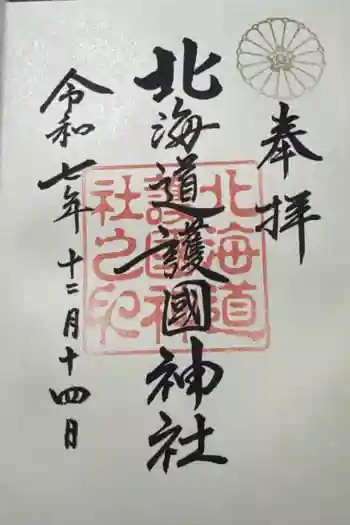 奉拝
北海道護國神社
令和七年十二月十四日
北海道
護國神
社之印